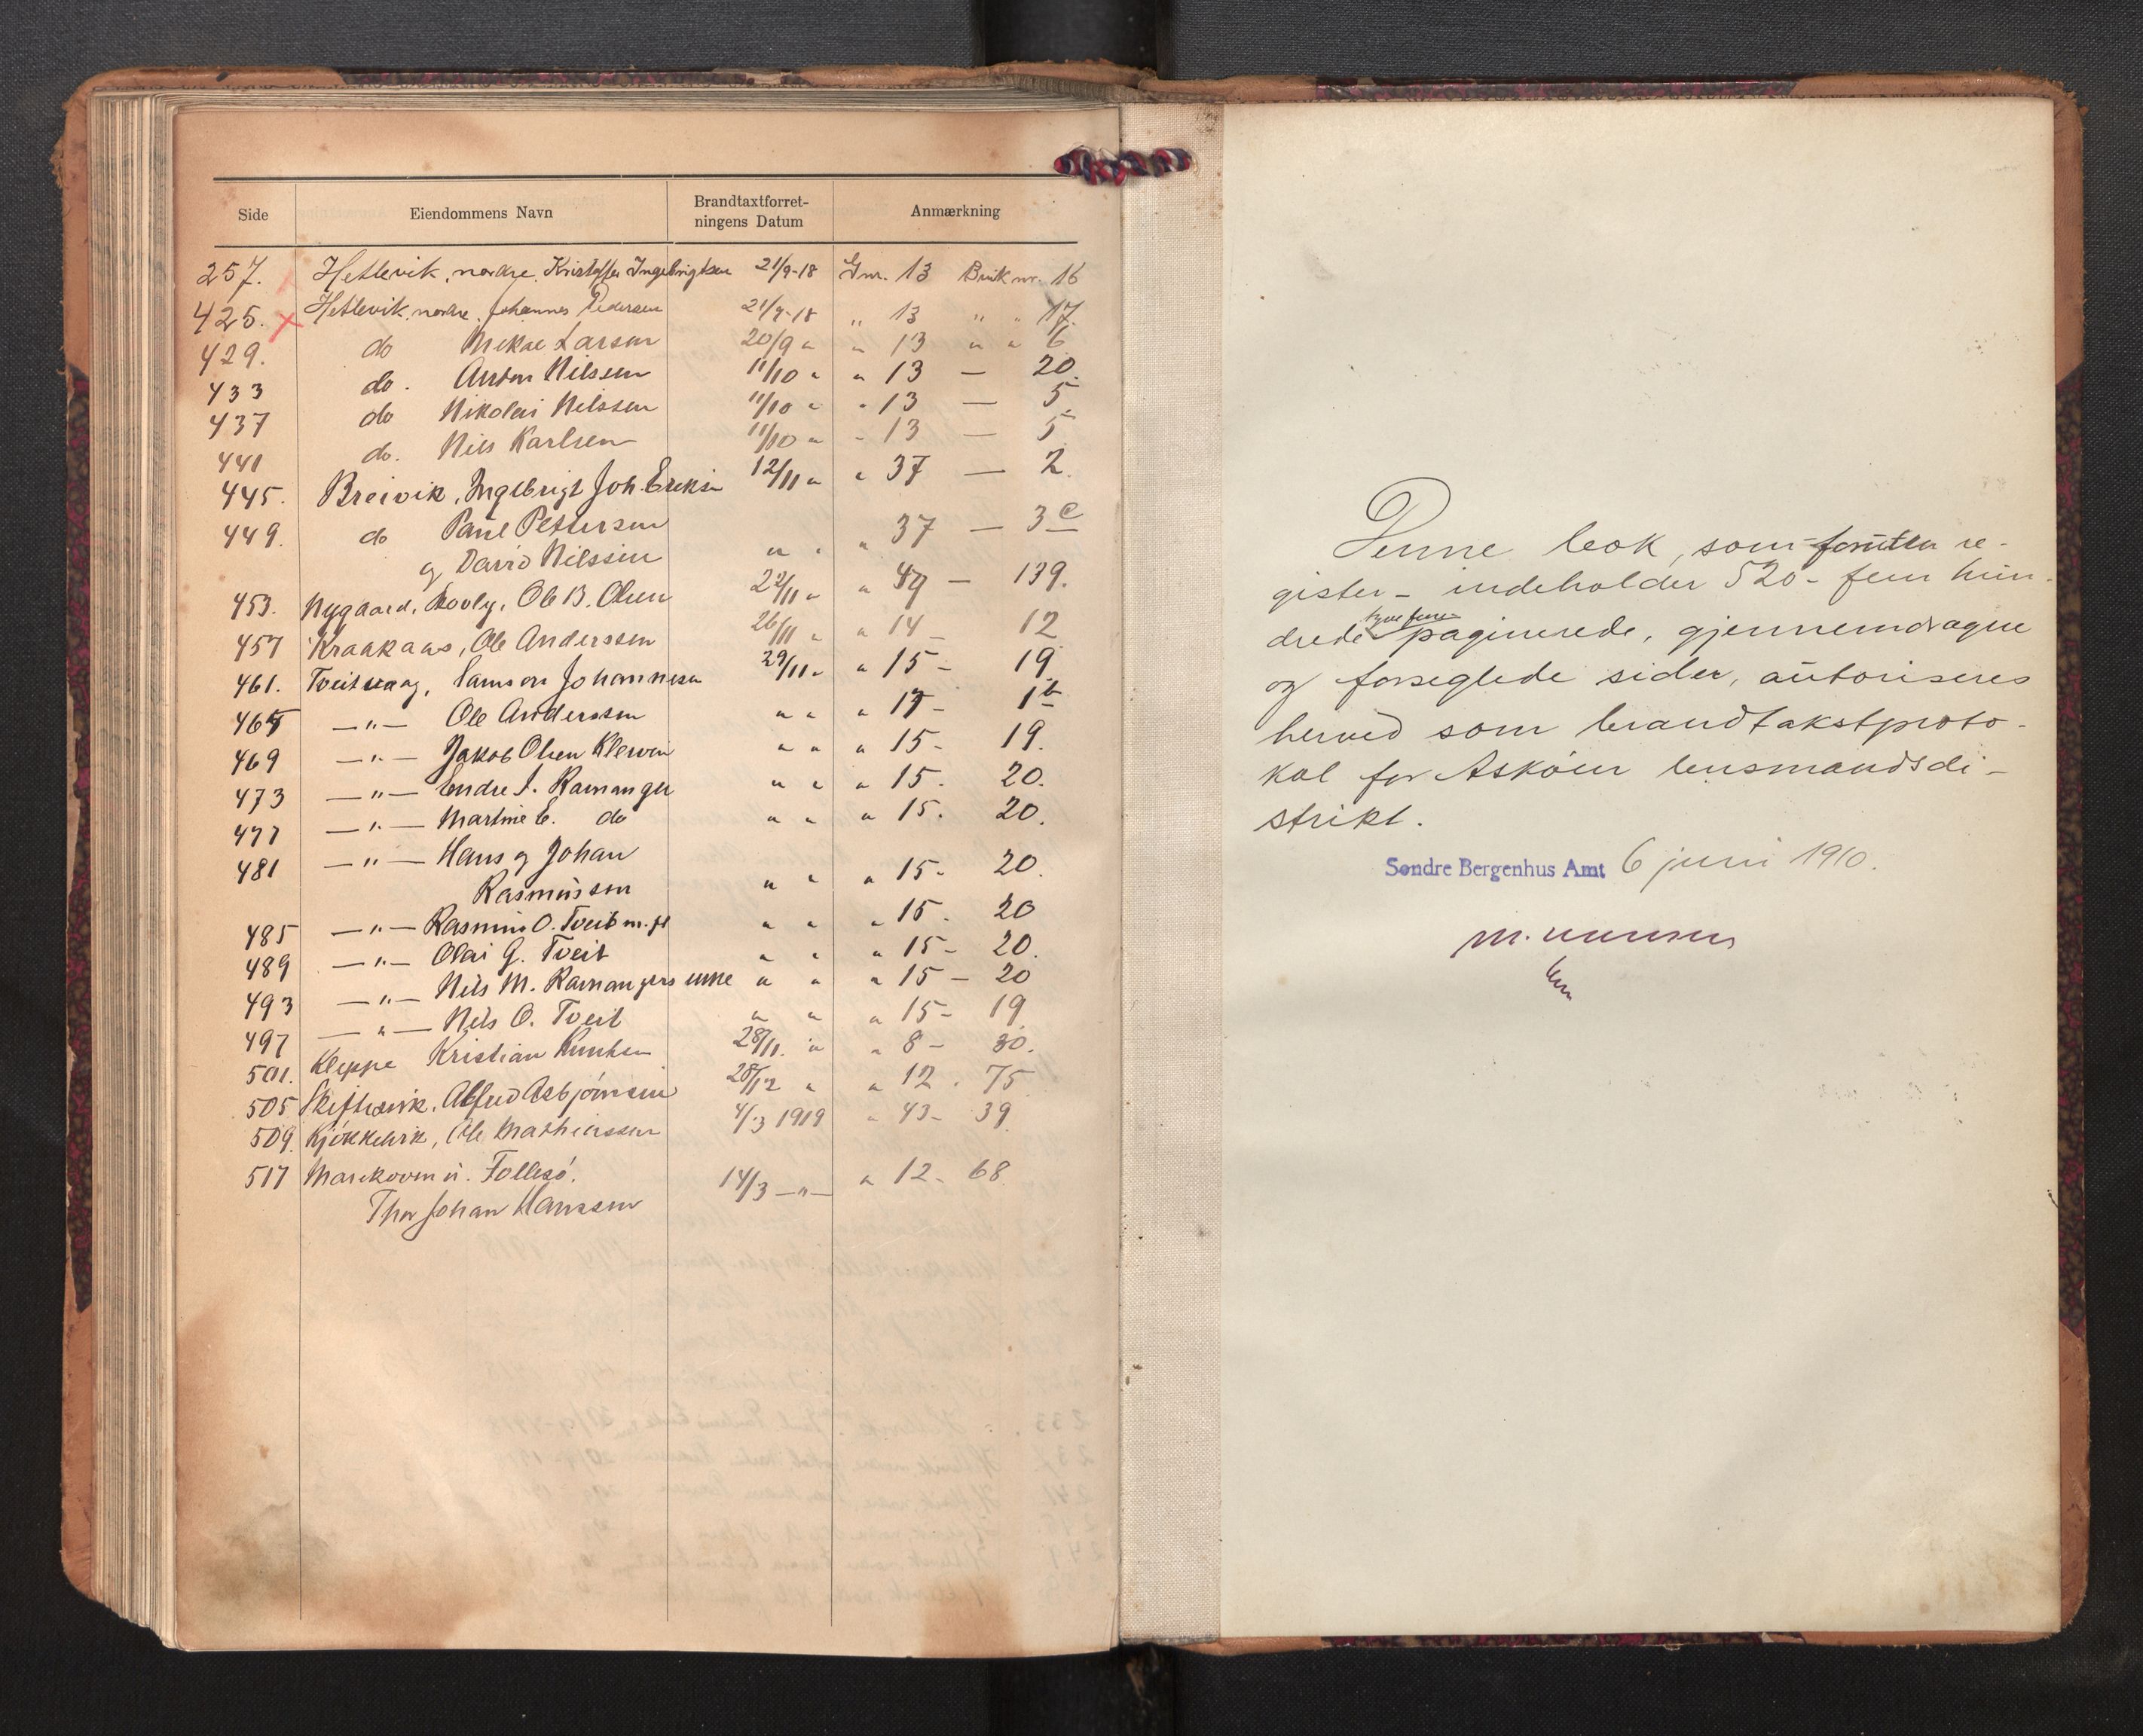 Side Eiendommens Navn Brandtaxtforret- Anmærkning
ningens Datum
257. Hetlevik, nordre. Kristoffer Ingebrigtsen 21/9-18 Gnr. 13 Bruk nr. 16
425. x Hetlevik, nordre. Johannes Pedersen 21/9-18 " 13 " " 17.
429. do Mikae Larsen 20/9 " " 13 " " 6
433 do. Anton Nilssen 11/10 " " 13 — 20.
437 do Nikolai Nilssen 11/10 " " 13 — 5.
441 do. Nils Karlsen 11/10 " " 13 — 5
445. Breivik, Ingebrigt Joh. Eriksen 12/11 " " 37 — 2.
449. do Paul Pettersen " 37 — 3c
og David Nilssen " "
453. Nygaard, Ole B. Olsen 22/11 " " 49 — 139.
457 Kraakaas, Ole Anderssen 26/11 " " 14 — 12
461. Tveitvaag, Samson Johannesen 29/11 " " 15 — 19
465 —"— Ole Anderssen " " " 17 - 1b
469 —"— Jakob Olsen " " " 15 - 19.
473 —"— Endre J. Ramanger " " " 15 - 20.
477 —"— Martine E. do " " " 15. 20.
481 —"— Hans og Johan
Rasmussen " " " 15 - 20.
485 —"— Rasmus O. Tveit m. fl " " " 15. 20
489 —"— Olai G. Tveit " " " 15 - 20.
493 —"— Nils M. Ramangers enke " " " 15 — 20
497 —"— Nils O. Tveit " " " 15 - 19
501. Kleppe Kristian Knutsen 28/11. " " 8 - 30.
505 Skiftesvik. Alfred Asbjörnsen 28/12 " " 12. 75
509. Kjökkelvik, Ole Mathiassen 4/3 1919 " 43 - 39
517 Follesö.
Thor Johan Hanssen 14/3 —"— " 12 - 68
Denne bok, som foruten re-
gister - indeholder 520 - fem hun-
drede tyve
paginerede, gjennemdragne
og forseglede sider, autoriseres
herved som brandtakstproto-
kol for Asköen lensmandsdi-
strikt.
Søndre Bergenhus Amt 6 juni 1910.